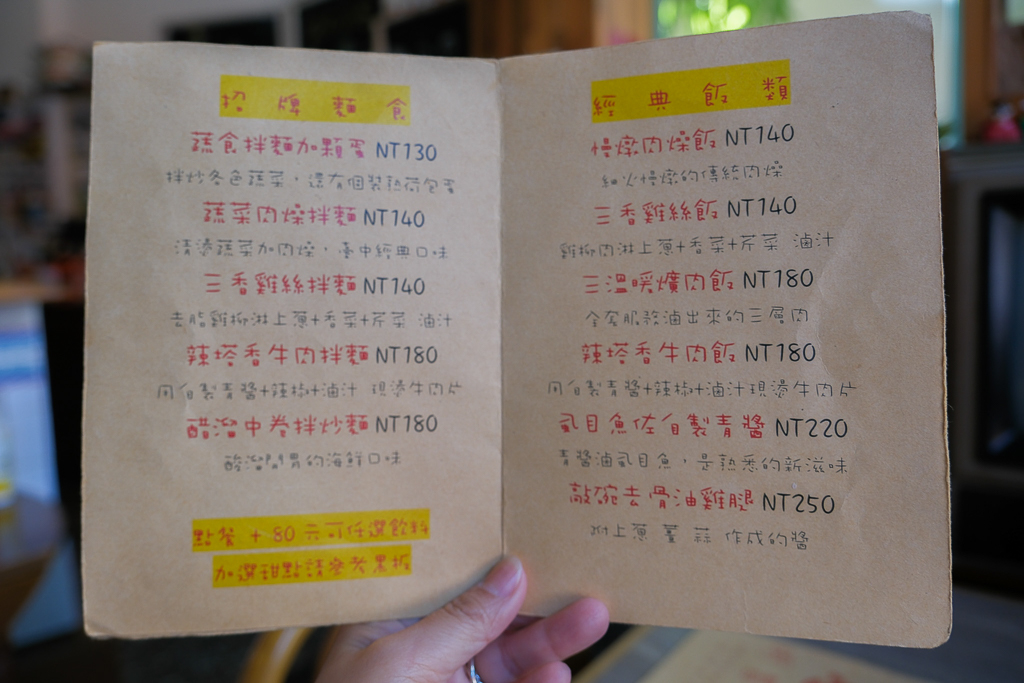 招牌麵食
蔬食拌麵加顆蛋 NT130
拌炒各色蔬菜，還有個裝熟荷包蛋
蔬菜肉燥拌麵 NT140
清燙蔬菜加肉燥，臺中經典口味
三香雞絲拌麵 NT140
去脂雞柳淋上蔥+香菜+芹菜 滷汁
辣塔香牛肉拌麵 NT180
用自製青醬+辣椒+滷汁 現燙牛肉片
醋溜中卷拌炒麵 NT180
酸溜開胃的海鮮口味
點餐 + 80 元可任選飲料
加選甜點請參考黑板
經典飯類
慢燉肉燥飯 NT140
細火慢燉的傳統肉燥
三香雞絲飯 NT140
雞柳肉淋上蔥+香菜+芹菜 滷汁
三溫暖爌肉飯 NT180
全套服務滷出來的三層肉
辣塔香牛肉飯 NT180
用自製青醬+辣椒+滷汁現燙牛肉片
虱目魚佐自製青醬 NT220
青醬滷虱目魚，是熟悉的新滋味
敲碗去骨油雞腿 NT250
附上蔥 薑 蒜 作成的醬